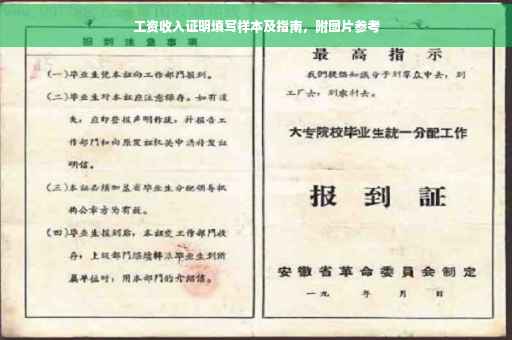 工资收入证明填写样本及指南，附图片参考
报到注意事项
(一)毕业生凭本证向工作部门报到。
(二)毕业生对本证应注意保存。如有遗
失，应即登报声明作废，并报告工
作部门和向原发证机关申请补发证
明信。
(三)本证必须加盖省毕业生分配领导机
构公章方为有效。
(四)毕业生报到后，本证交工作部门收
存；上级部门继续转派毕业生到所
属单位时，用本部门的介绍信。
最高指示
我们提倡知识分子到群众中去，到
工厂去，到农村去。
大专院校毕业生統一分配工作
报到証
安徽省革命委員会制定
一九 年 月 日